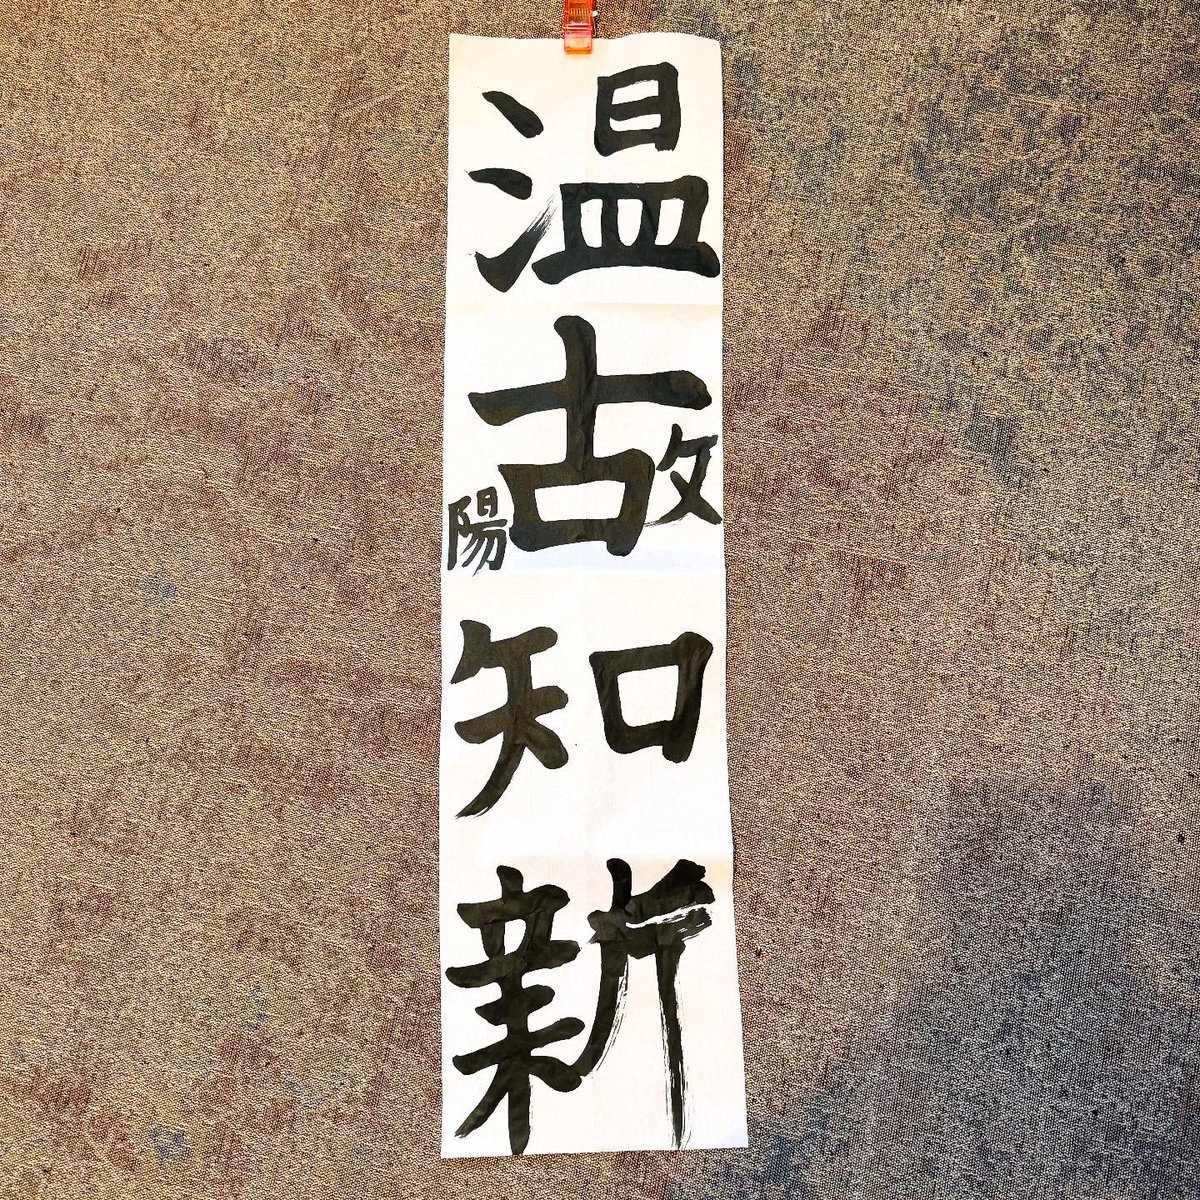 温故知新
陽